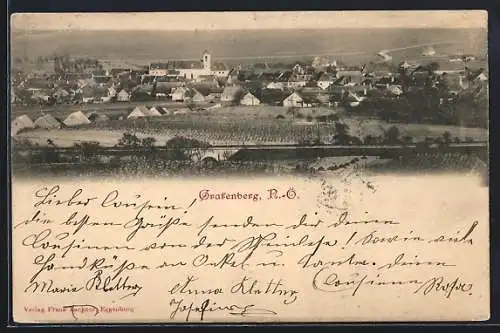 Grafenberg, N.-Ö.
Lieber Cousin!
die besten Grüße senden dir deine
Cousinen von der Weinlese! Sowie viele
Handküsse an Onkel u. Tante. deine
Marie Klettner Anna Klettner Cousine Rosa.
Josefine
Verlag Franz Eggenburg